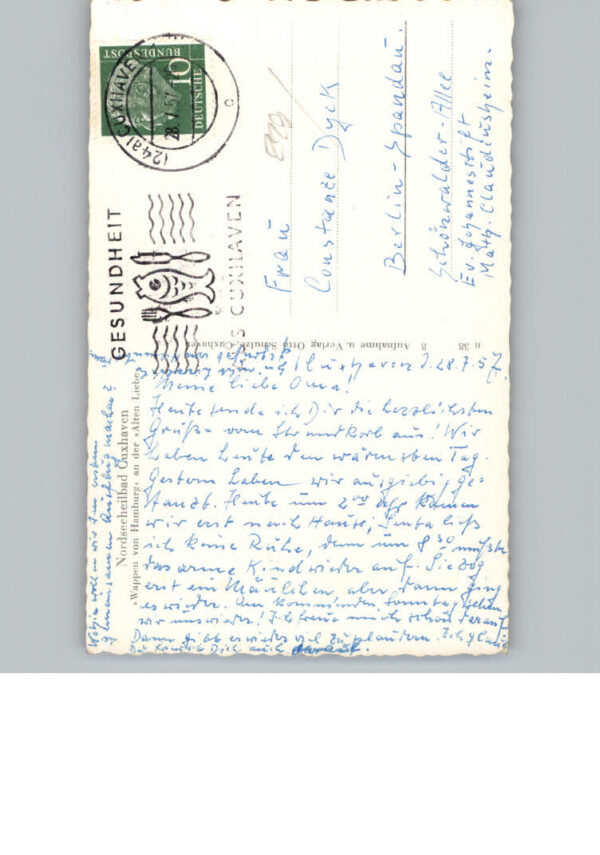 (24a) CUXHAVEN
28.7.57
c
DEUTSCHE
BUNDESPOST
10
GESUNDHEIT
S CUXHAVEN
Frau
Constanze Dyck
Berlin-Spandau.
Schönwalder-Allee
Ev. Johannesstift
Math. Claudiusheim.
n 38 Aufnahme u. Verlag Otto Schulze, Cuxhaven 8
Nordseeheilbad Cuxhaven
»Wappen von Hamburg« an der »Alten Liebe«
Cuxhaven d. 28.7.57.
Meine liebe Oma!
Heute sende ich Dir die herzlichsten
Grüße vom Strandkorb aus! Wir
haben heute den wärmsten Tag.
Gestern haben wir ausgiebig ge-
tanzt. Heute um 2°° Uhr kamen
wir erst nach Hause, ließ
ich keine Ruhe, denn um 8 30 mußte
das arme Kind wieder auf. Sie zog
erst ein Mäulchen, aber dann ging
es wieder. Am kommenden Sonntag sehen
wir uns wieder! Ich freue mich schon darauf.
Dann gibt es wieder viel zu plaudern. Ich glaube
Du freust Dich auch darauf.
Wohin wollen wir den ersten
Ausflug machen?